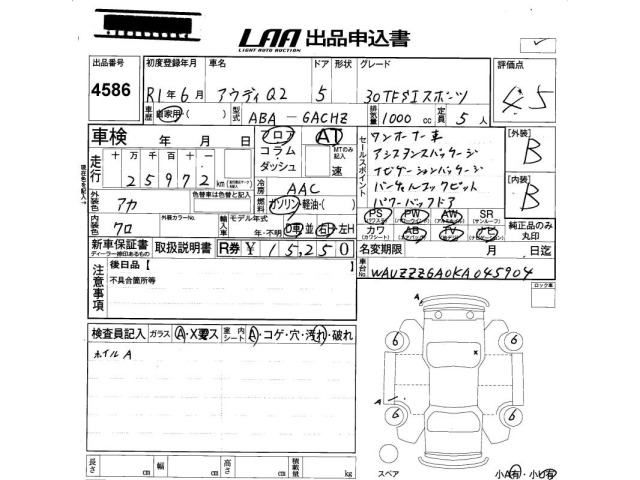 LAA 出品申込書
LIGHT AUTO AUCTION
出品番号
4586
初度登録年月 車名 ドア 形状 グレード
R1年6月 アウディQ2 5 30TFSIスポーツ
評価点
4.5
車歴 自家用・( ) 型式 ABA-6ACHZ 排気量 1000cc 定員 5人
車検 年 月 日
フロア AT
コラム・ダッシュ MTのみ記入 速
セールスポイント
ワンオーナー車
アシスタンスパッケージ
ナビゲーションパッケージ
バーチャルコックピット
パワーバックドア
[外装] B
[内装] B
走行 十万 万 千 百 十 一
25972 km
現在色を記入→
冷房 AAC
外装色 アカ
色替車は色替と記入
燃料 ガソリン・軽油・( )
内装色 クロ
外装カラーNo.
輸入車 モデル年式
年・不明 D車 並 右H・左H
PS PW AW SR
(サンルーフ)
カワ AB TV ナビ
純正品のみ丸印
新車保証書 取扱説明書 R券 ¥15,250
ディーラー捺印あるもの
名変期限 月 日迄
車台No. WAUZZZGA0KA045904
注意事項
後日品【
不具合箇所等
ロック車
検査員記入 ガラス A・X要ス 室内シート A・コゲ・穴・汚れ・破れ
ホイルA
A
x
6 6
A
6 6
スペア
小A有・小U有
長さ cm 幅 cm 高さ cm 積載量 kg